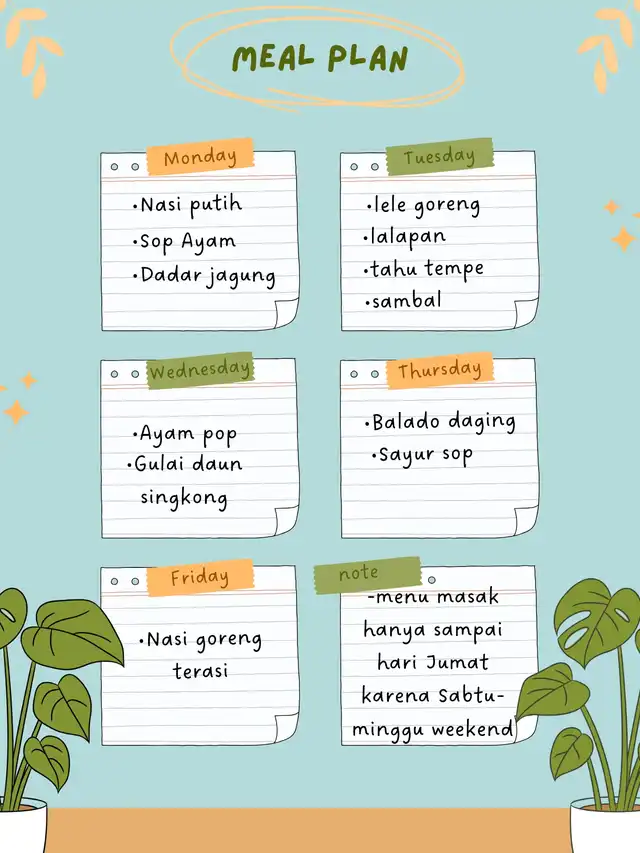 MEAL PLAN
Monday
•Nasi putih
•Sop Ayam
•Dadar jagung
Tuesday
•lele goreng
•lalapan
•tahu tempe
•sambal
Wednesday
•Ayam pop
•Gulai daun
singkong
Thursday
•Balado daging
•Sayur sop
Friday
•Nasi goreng
terasi
note
-menu masak
hanya sampai
hari Jumat
karena Sabtu-
minggu weekend